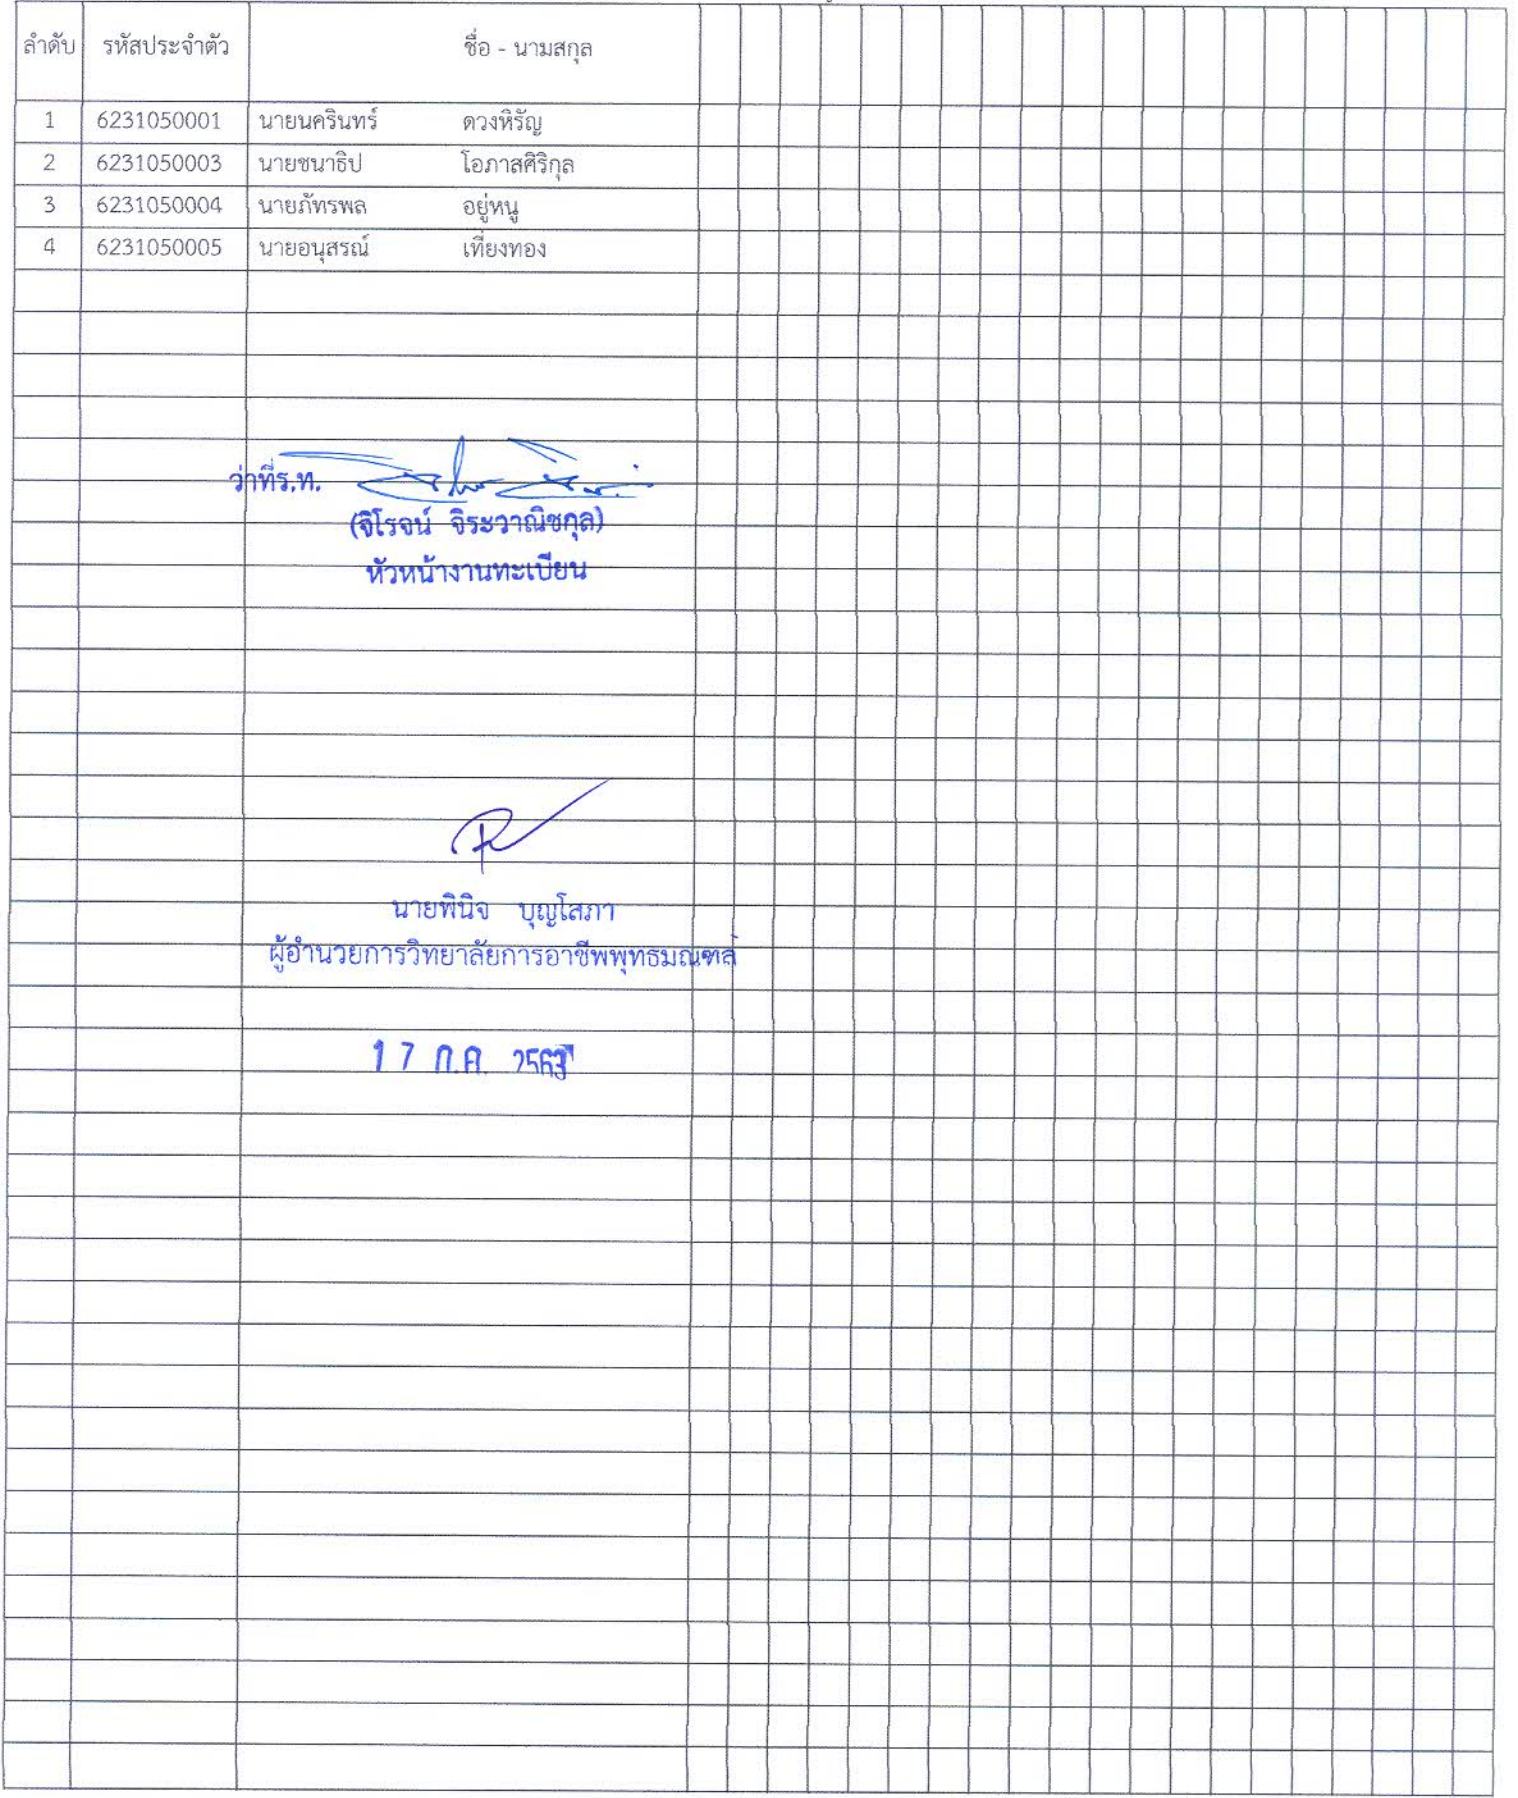 ลำดับ รหัสประจำตัว ชื่อ - นามสกุล
1 6231050001 นายนครินทร์ ดวงหิรัญ
2 6231050003 นายชนาธิป โอภาสศิริกุล
3 6231050004 นายภัทรพล อยู่หนู
4 6231050005 นายอนุสรณ์ เที่ยงทอง
ว่าที่ร.ท.
(จิโรจน์ จิระวาณิชกุล)
หัวหน้างานทะเบียน
นายพินิจ บุญโสภา
ผู้อำนวยการวิทยาลัยการอาชีพพุทธมณฑล
17 ก.ค. 2563